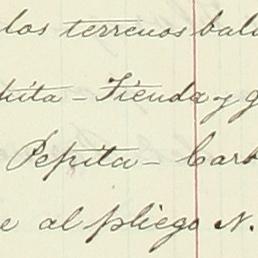 los terrenos bald
pita – Tienda y g
Pepita – Carb
e al pliego N.